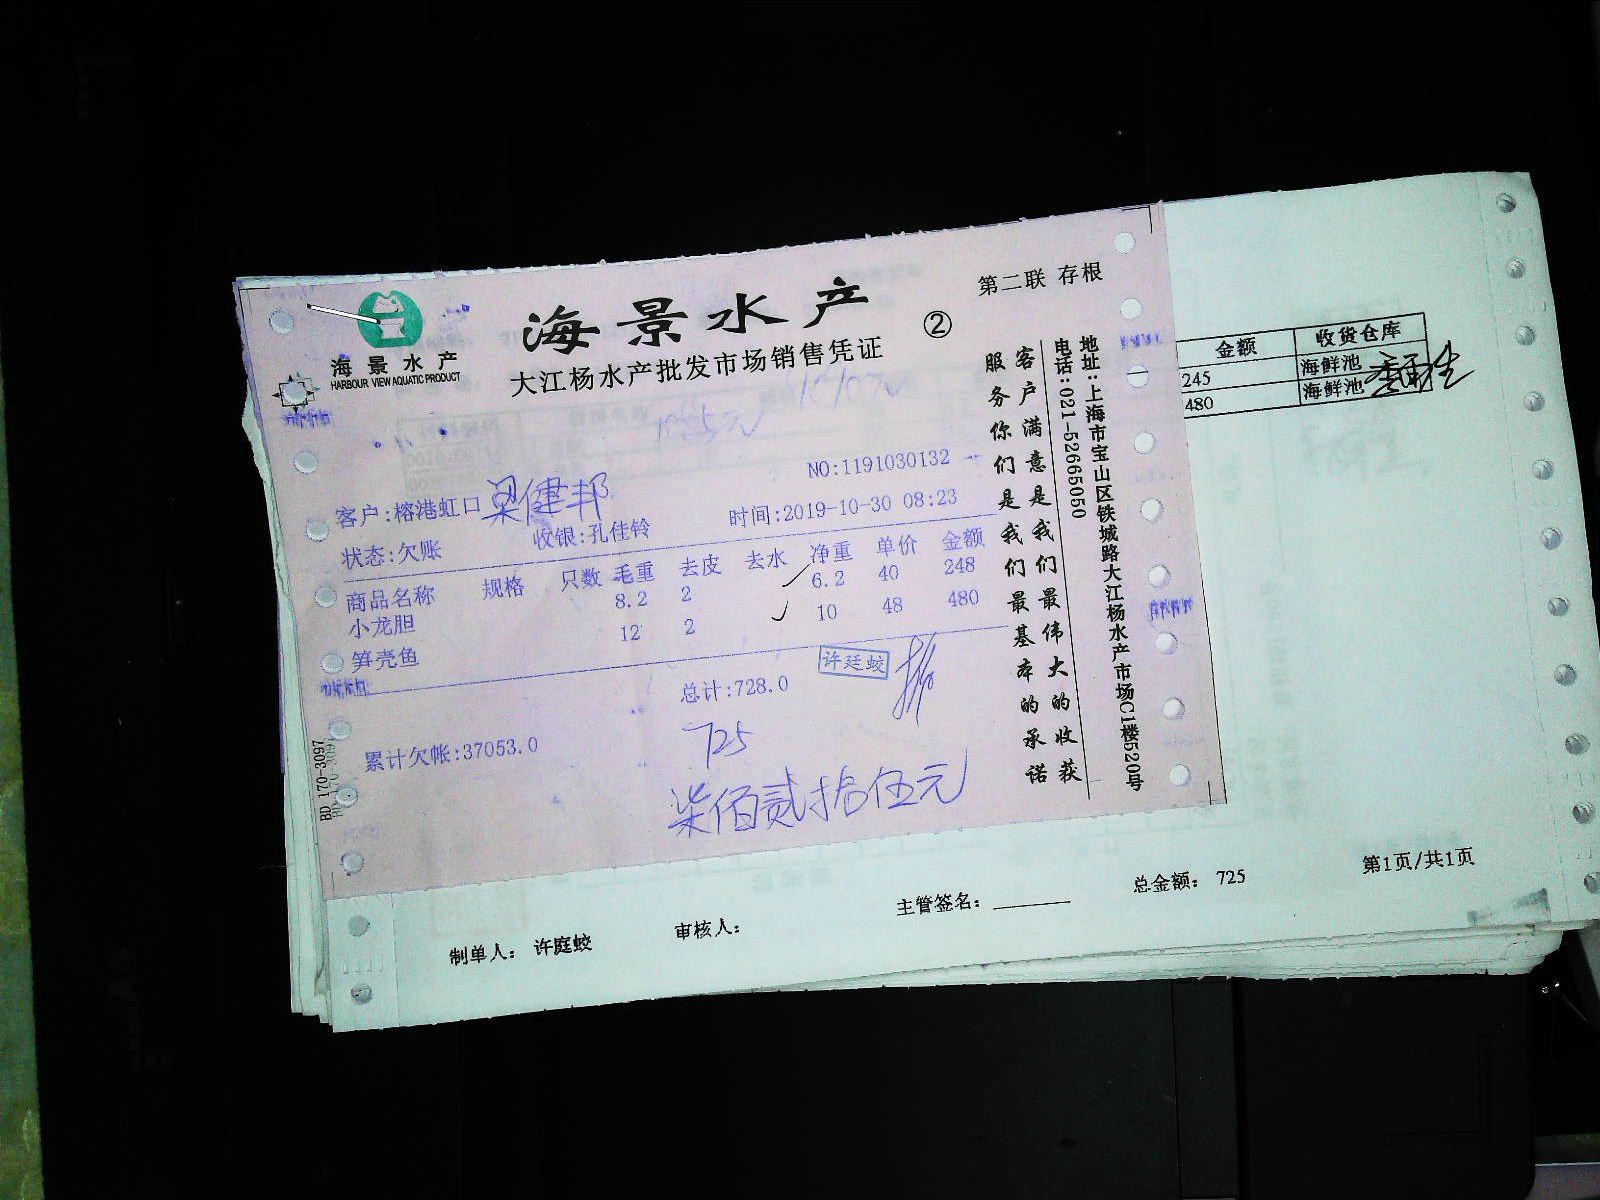 第二联 存根
海景水产
②
海景水产
HARBOUR VIEW AQUATIC PRODUCT
大江杨水产批发市场销售凭证
NO:1191030132
客户:榕港虹口 梁健邦
时间:2019-10-30 08:23
状态:欠账 收银:孔佳铃
商品名称 规格 只数 毛重 去皮 去水 净重 单价 金额
小龙胆 8.2 2 6.2 40 248
笋壳鱼 12 2 10 48 480
总计:728.0
许廷蛟
725
累计欠帐:37053.0
柒佰贰拾伍元
客户满意是我们最伟大的收获
服务你们是我们最基本的承诺
地址:上海市宝山区铁城路大江杨水产市场C1楼520号
电话:021-52665050
BD 170-3097
金额 收货仓库
245 海鲜池
480 海鲜池
制单人: 许庭蛟 审核人: 主管签名: 总金额: 725 第1页/共1页